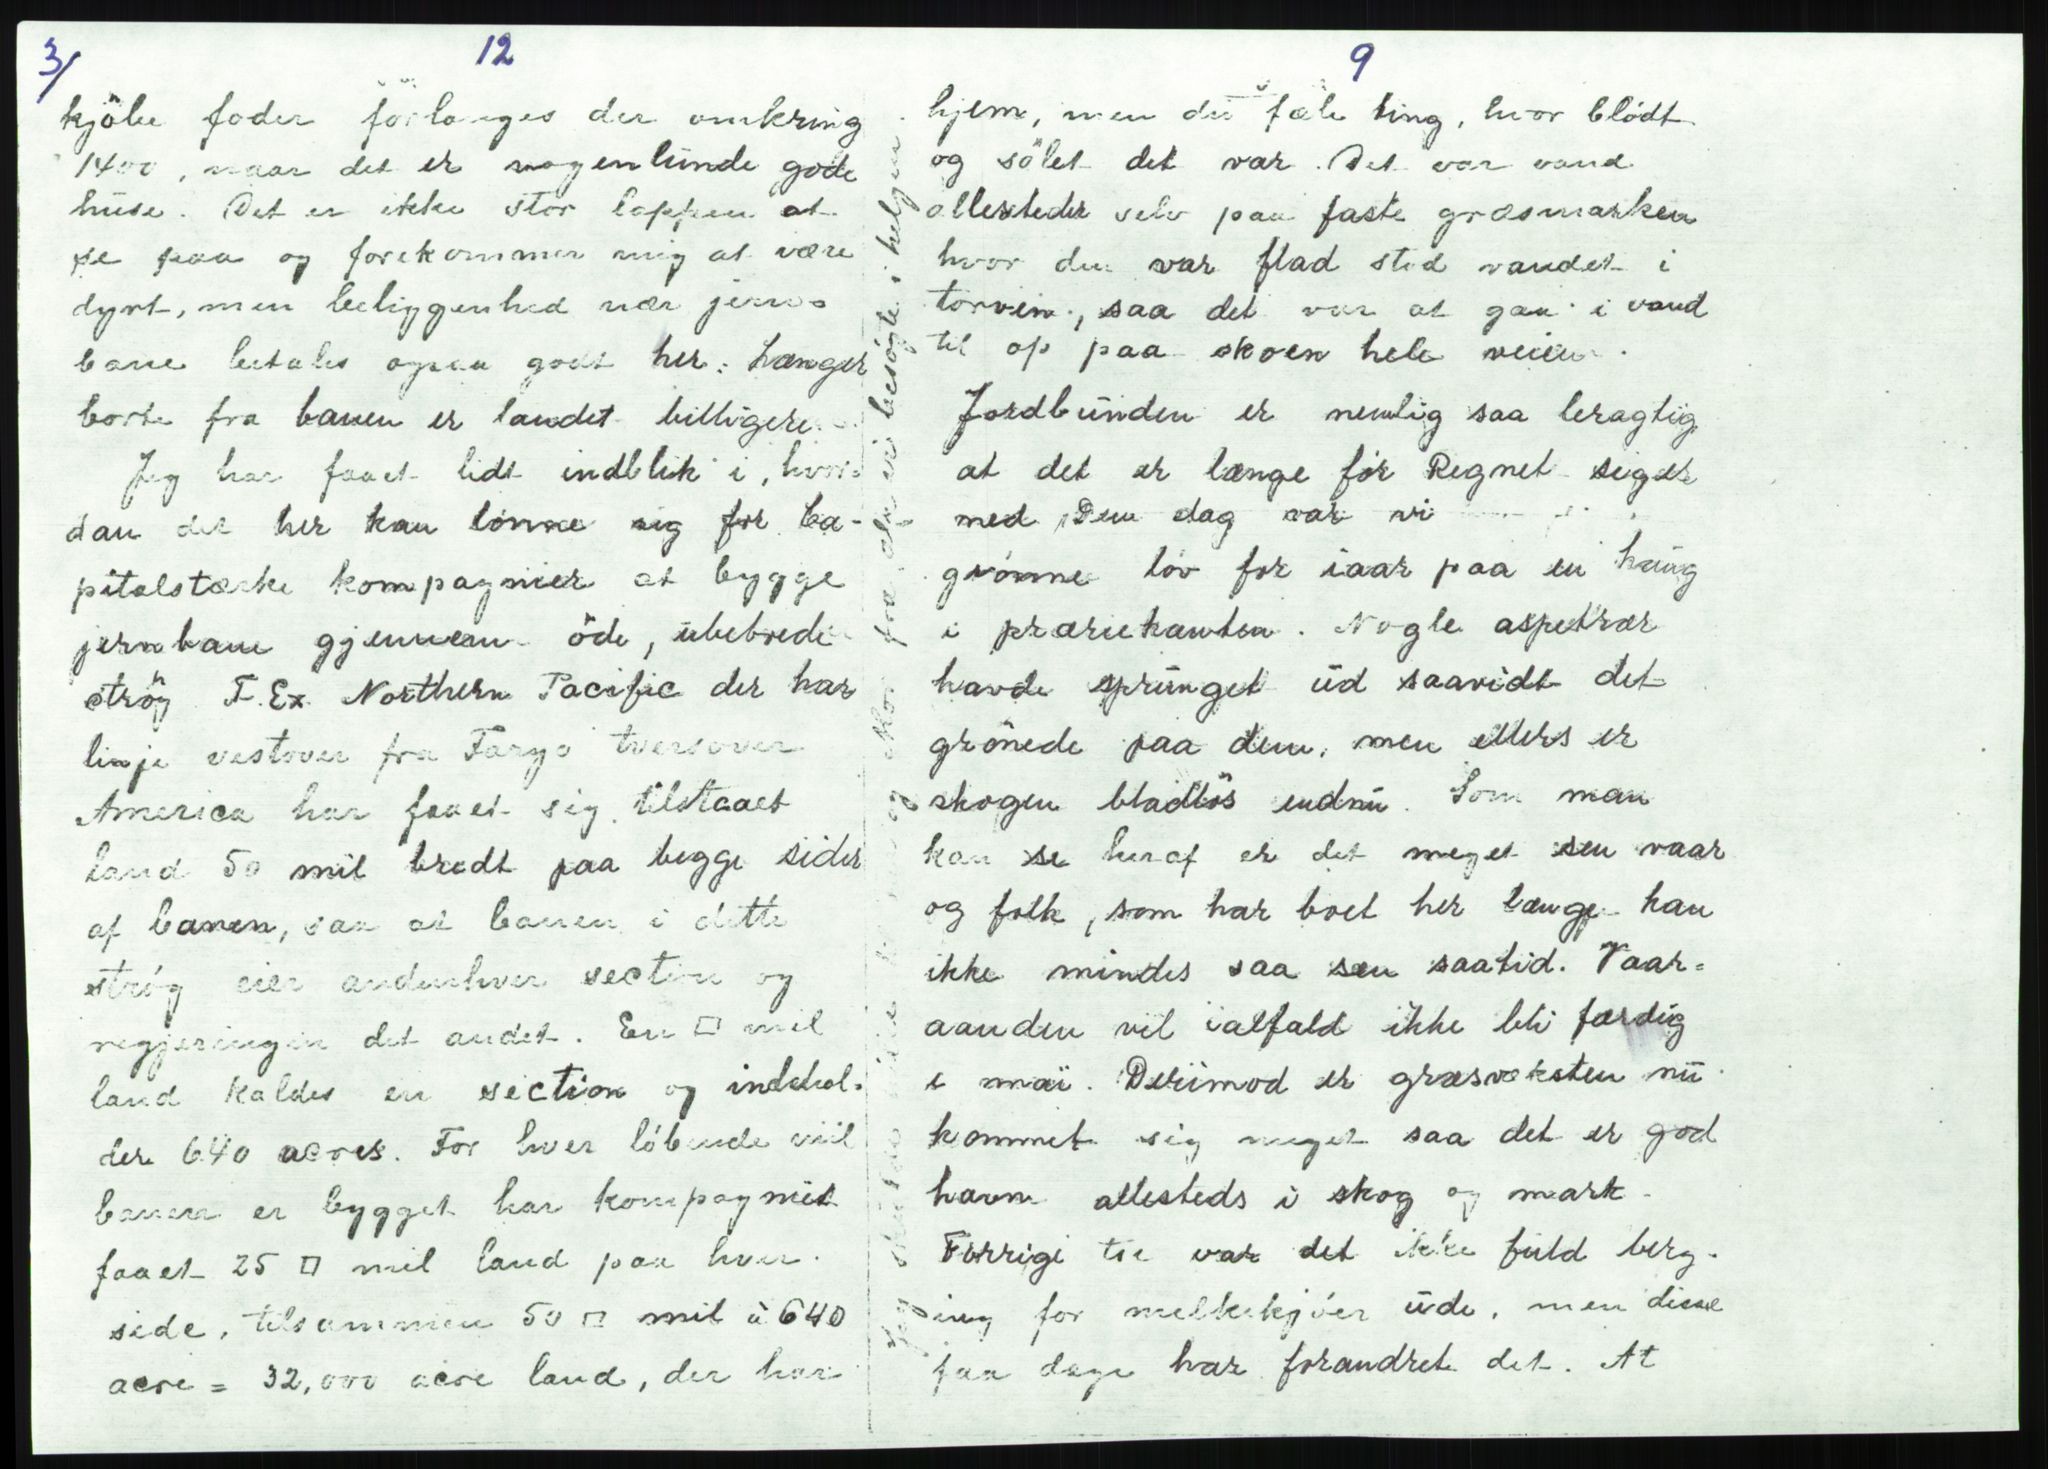 3/
12
kjöbe foder forlanges der omkring
1400, naar det er nogenlunde gode
huse. Det er ikke stor lappen at
se paa og forekommer mig at være
dyrt, men beliggenhed nær jern=
bane betales ogsaa godt her. Længer
borte fra banen er landet billigere
Jeg har faaet lidt indblik i, hvor=
dan det her kan lönne sig for ka-
pitalstærke kompagnier at bygge
jernbane gjennem öde, ubeboede
strög F. Ex. Northern Pacific der har
linje vestover fra Fargo tversover
America har faaet sig tilstaaet
land 50 mil bredt paa begge sider
af banen, saa at banen i dette
strög eier andenhver section og
regjeringen det andet. En □ mil
land kaldes en section og indehol-
der 640 acres. For hver löbende mil
banen er bygget har kompagniet
faaet 25 □ mil land paa hver
side, tilsammen 50 □ mil à 640
acre = 32,000 acre land, der har
9
hjem, men du fæle ting, hvor blödt
og sölet det var. Det var vand
allesteder selv paa faste græsmarken
hvor den var flad stod vandet i
torven, saa det var at gaa i vand
til op paa skoen hele veien.
Jordbunden er nemlig saa leragtig
at det er længe för Regnet siger
ned Den dag var vi
grönne löv for iaar paa en haug
i præriekanten. Nogle aspetrær
havde sprunget ud saavidt det
grönede paa dem, men ellers er
skogen bladlös endnu. Som man
kan se heraf er det meget sen vaar
og folk, som har boet her længe kan
ikke mindes saa sen saatid. Vaar=
aanden vil ialfald ikke bli færdig
i mai. Derimod er græsveksten nu
kommet sig meget saa det er god
havn allesteds i skog og mark.
Forrige tir var det ikke fuld berg-
ing for melkekjöer ude, men disse
faa dage har forandret det. At